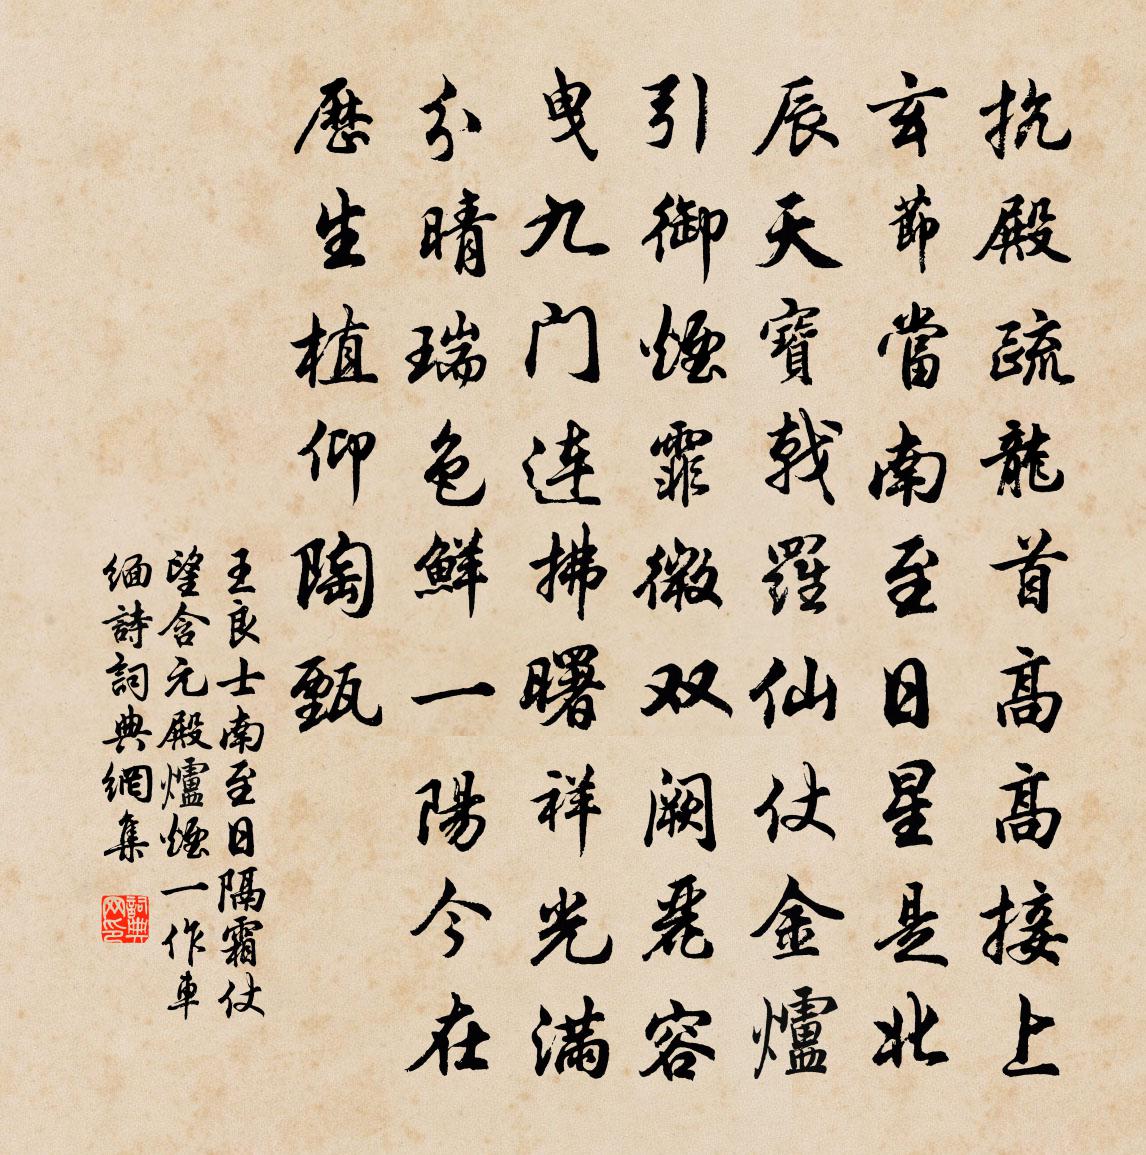 抗殿疏龍首高高接上
玄節當南至日星是北
辰天寶戟羅仙仗金爐
引御煙霏微双阙麗容
曳九门连拂曙祥光满
分晴瑞色鮮一陽今在
歷生植仰陶甄
王良士南至日隔霜仗
望含元殿爐煙一作車
緬詩詞典網集
詞典网印